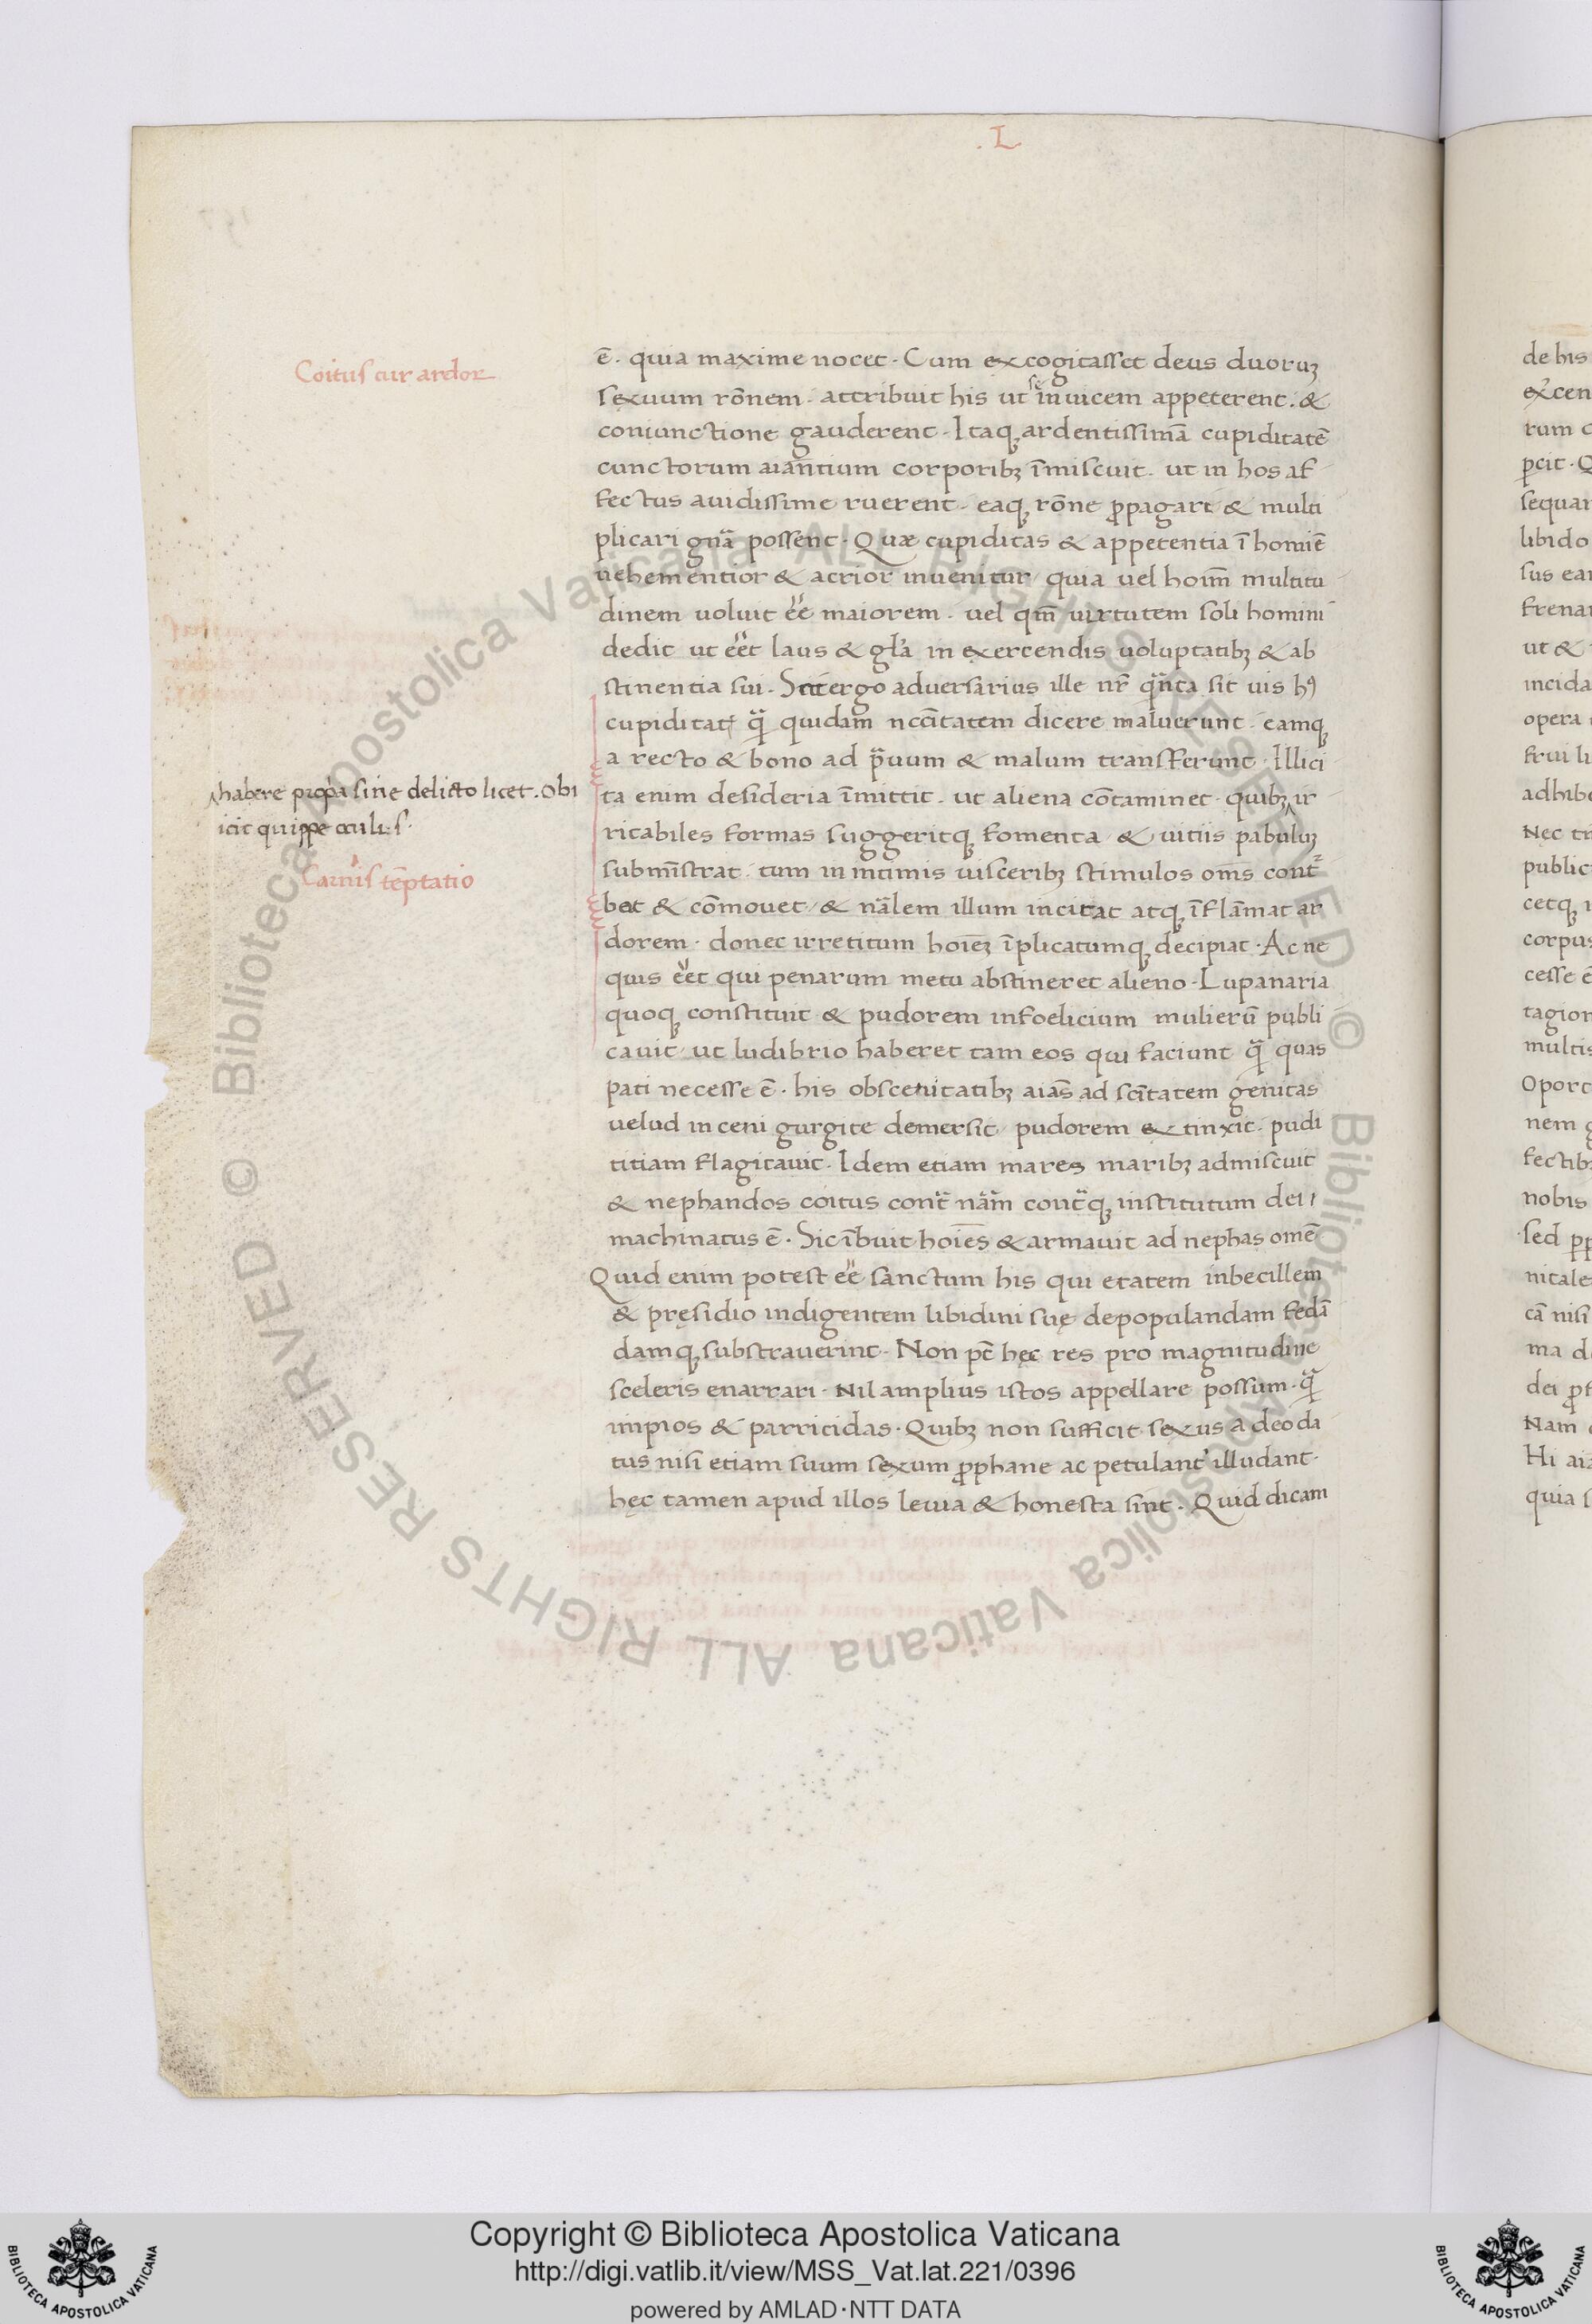 . L
Coitus cur ardor
ē. quia maxime nocet. Cum excogitasset deus duoruꝫ
sexuum rōnem. attribuit his ut se inuicem appeterent. &
coniunctione gauderent. Itaqꝫ ardentissimā cupiditatē
cunctorum aiantium corporibꝫ īmiscuit. ut in hos af
fectus auidissime ruerent. eaqꝫ rōne ꝓpagari & multi
plicari gnā possent. Quæ cupiditas & appetentia ī homiē
uehementior & acrior inuenitur quia uel hoim̄ multitu
dinem uoluit eē maiorem. uel qm̄ uirtutem soli homini
dedit ut eēt laus & glā in exercendis uoluptatibꝫ & ab
stinentia sui. Scit ergo aduersarius ille nr̄ quanta sit uis hꝰ
cupiditatꝭ quā quidam nccītatem dicere maluerunt. eamqꝫ
a recto & bono ad prauum & malum transferunt. Illici
ta enim desideria īmittit. ut aliena cōtaminet. quibꝫ ir
habere propria sine delicto licet. Obi
icit quippe oculis.
ritabiles formas suggeritqꝫ fomenta & uitiis pabuluꝫ
subministrat. tum in intimis uisceribꝫ stimulos oms̄ contur
Carnis tēptatio
bat & cōmouet & nālem illum incitat atqꝫ īflāmat ar
dorem. donec irretitum hoiēꝫ īplicatumqꝫ decipiat. Ac ne
quis eēt qui penarum metu abstineret alieno. Lupanaria
quoqꝫ constituit & pudorem infoelicium mulierū publi
cauit ut ludibrio haberet tam eos qui faciunt quā quas
pati necesse ē. his obscenitatibꝫ aiās ad scītatem genitas
uelud in ceni gurgite demersit pudorem extinxit. pudi
titiam flagitauit. Idem etiam mares maribꝫ admiscuit
& nephandos coitus contra nām contraqꝫ institutum dei
machinatus ē. Sic ībuit hoiēs & armauit ad nephas omē
Quid enim potest eē sanctum his qui etatem inbecillem
& pręsidio indigentem libidini suę depopulandam fedā
damqꝫ substrauerint. Non pt̄ hęc res pro magnitudine
sceleris enarrari. Nil amplius istos appellare possum. quā
impios & parricidas. Quibꝫ non sufficit sexus a deo da
tus nisi etiam suum sexum ꝓphane ac petulant᷑ illudant.
hęc tamen apud illos leuia & honesta sint. Quid dicam
de his
rum
sequar
libido
ut &
incida
opera
frui li
adhibe
public
corpus
cesse ē
multis
nem
nobis
nitale
cā nisi
ma d
Nam
quia s
© Biblioteca Apostolica Vaticana ALL RIGHTS RESERVED © Biblioteca Apostolica Vaticana ALL RIGHTS RESERVED
Copyright © Biblioteca Apostolica Vaticana
http://digi.vatlib.it/view/MSS_Vat.lat.221/0396
powered by AMLAD·NTT DATA
BIBLIOTECA APOSTOLICA VATICANA
BIBLIOTECA APOSTOLICA VATICANA